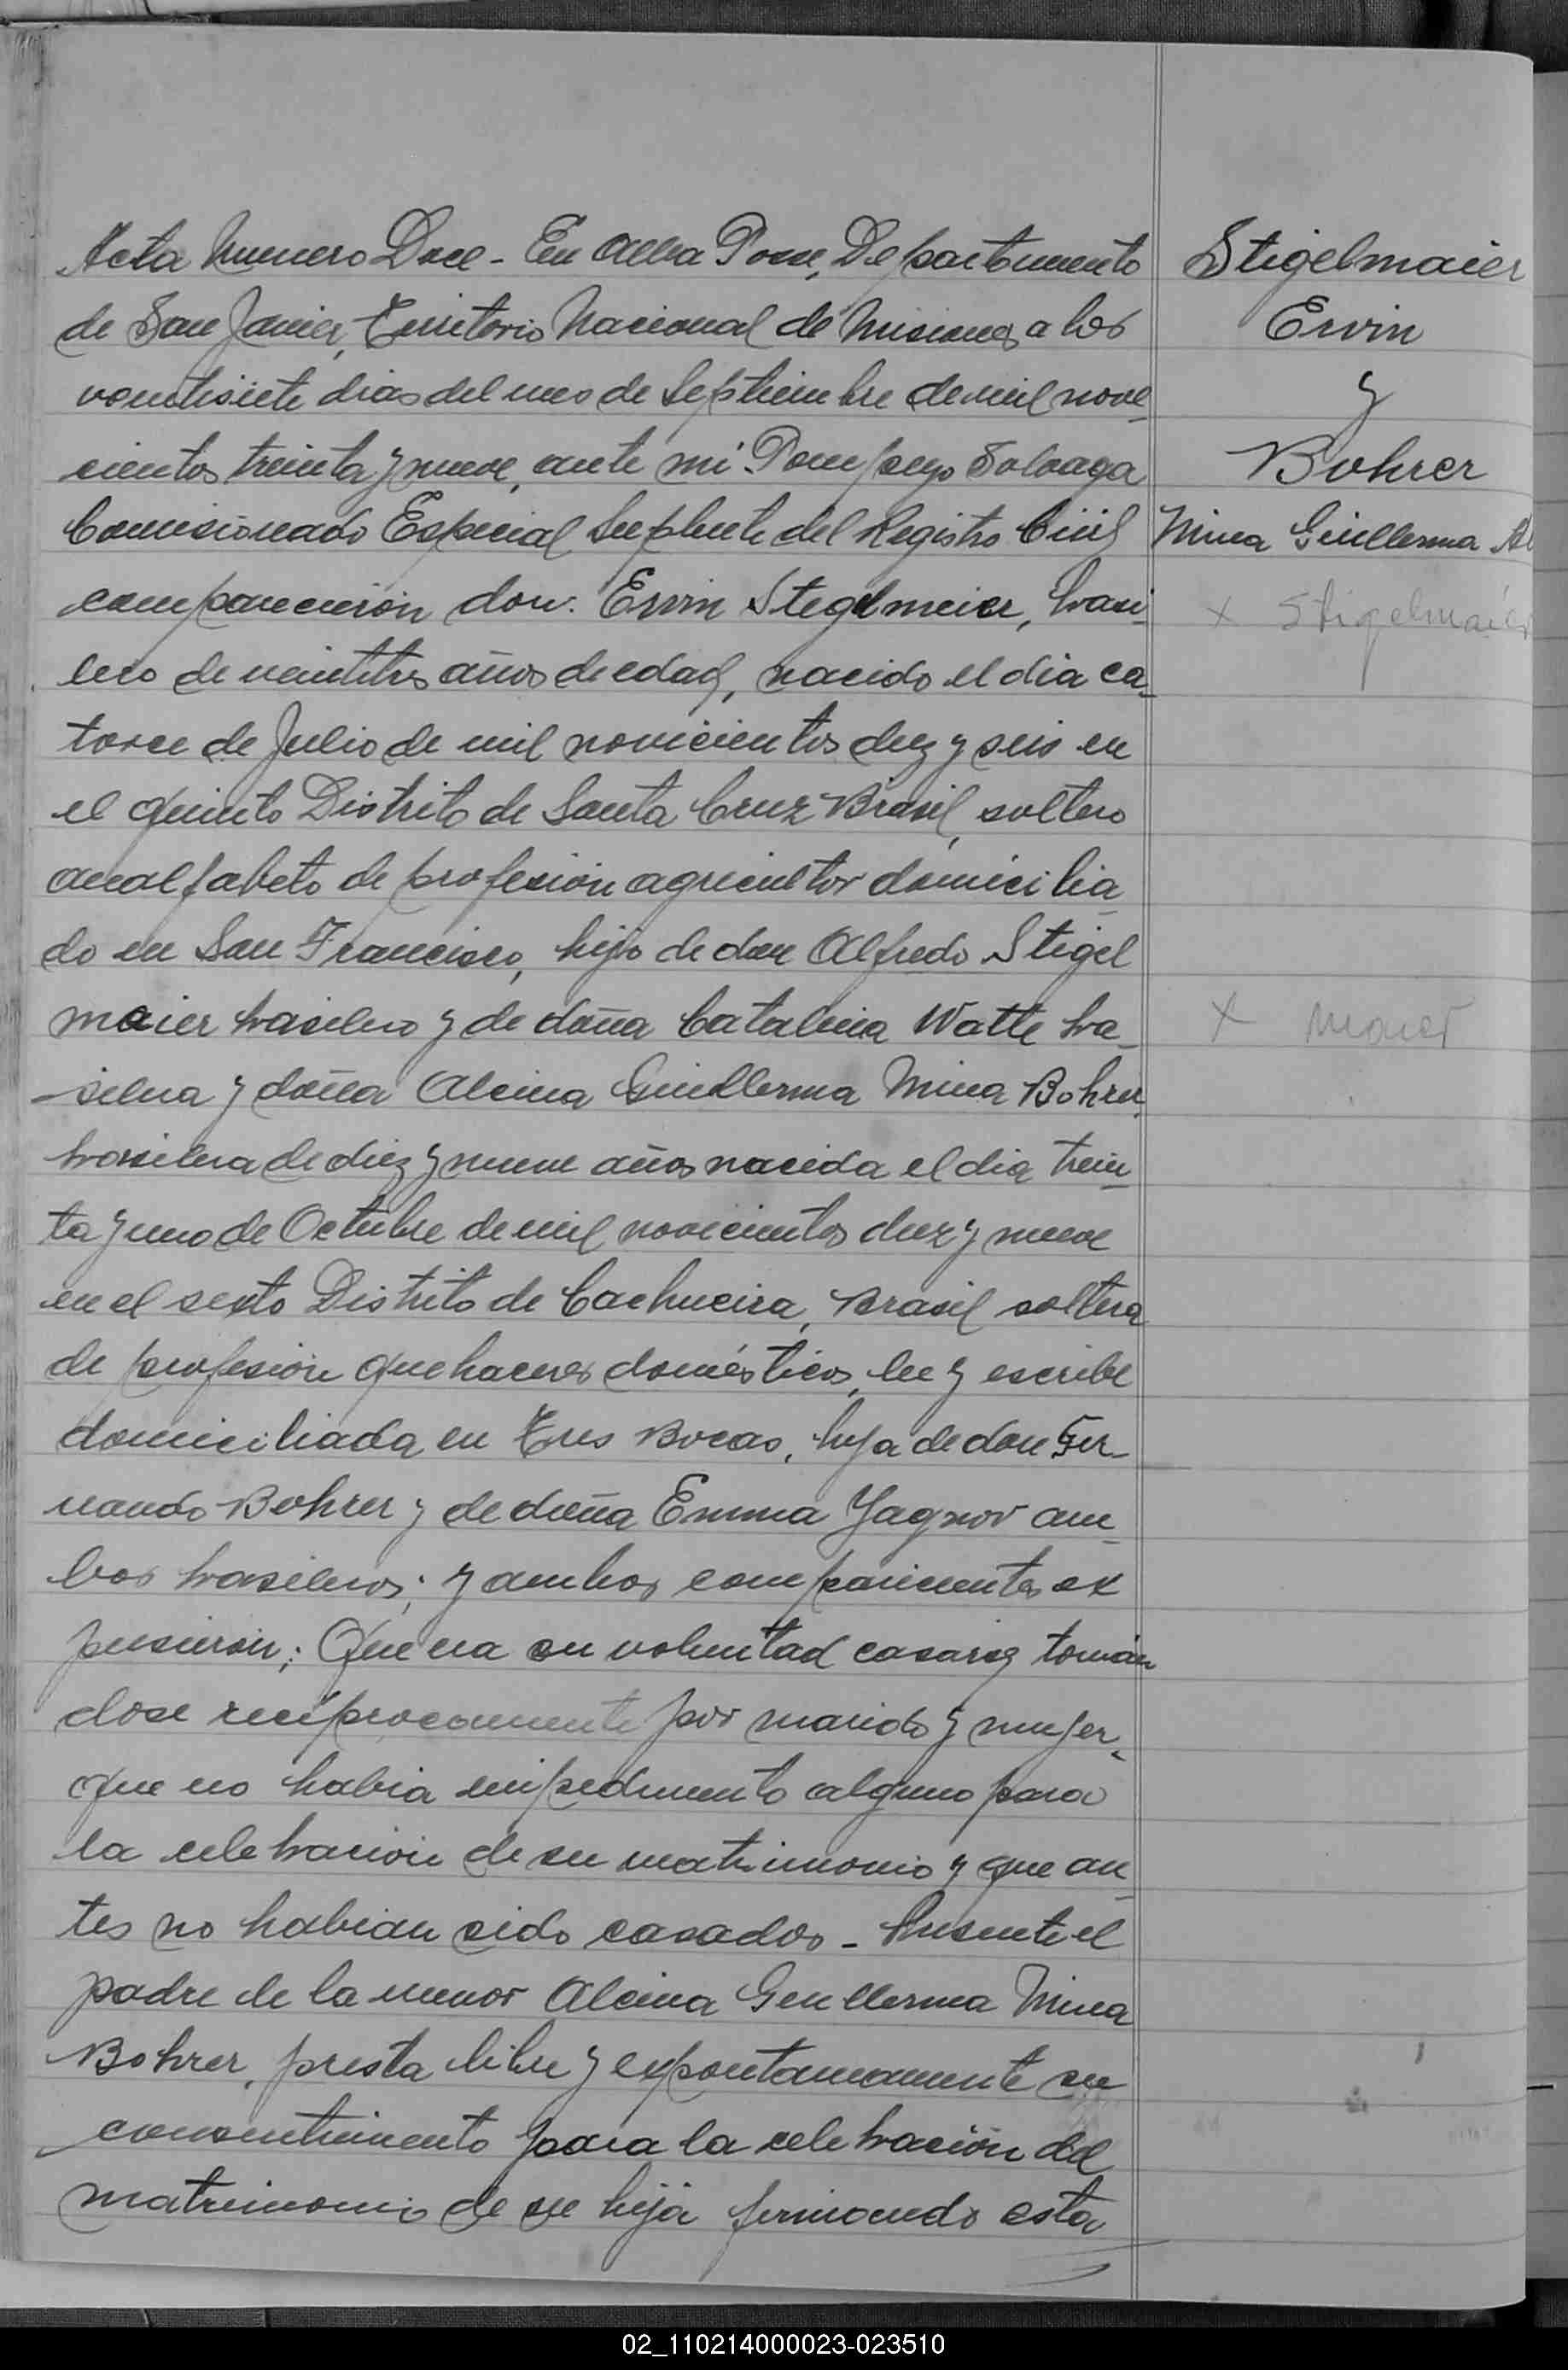 Acta Numero Doce - En Alba Posse, Departamento
de San Javier, Territorio Nacional de Misiones a los
veintisiete dias del mes de Septiembre de mil nove-
cientos treinta y nueve, ante mi Pompeyo Soloaga
Comisionado Especial Suplente del Registro Civil
comparecieron don: Ervin Stegelmeier, brasi-
lero de veintitres años de edad, nacido el dia ca-
torce de Julio de mil novecientos diez y seis en
el quinto Distrito de Santa Cruz Brasil, soltero
analfabeto de profesión agricultor domicilia
do en San Francisco, hijo de don Alfredo Stigel
maier brasilero y de doña Catalina Watte bra-
silera y doña Alcina Guillerma Mina Bohrer,
brasilera de diez y nueve años nacida el dia trein-
ta y uno de Octubre de mil novecientos diez y nueve
en el sexto Distrito de Cachueira, Brasil soltera
de profesión quehaceres domésticos, lee y escribe
domiciliada en Tres Bocas, hija de don Fer-
nando Bohrer y de doña Emma Yagnov am-
bos brasileros; y ambos comparecientes ex
pusieron; Que era su voluntad casarse tomán
dose reciprocamente por marido y mujer,
que no habia impedimento alguno para
la celebración de su matrimonio y que an-
tes no habian sido casados - Presente el
padre de la menor Alcina Guillerma Mina
Bohrer, presta libre y expontaneamente su
consentimiento para la celebración del
matrimonio de su hija firmando esta
Stigelmaier
Ervin
y
Bohrer
Mina Guillerma Al
x Stigelmaier
x maier
02_110214000023-023510